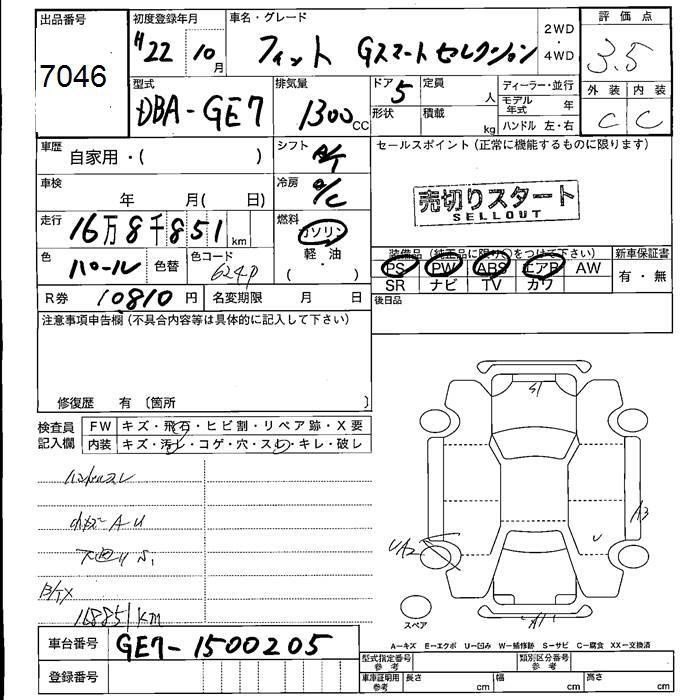 出品番号
7046
初度登録年月
H22 10月
車名・グレード
フィット Gスマートセレクション
2WD・4WD
評価点
3.5
外装 内装
C C
型式
DBA-GE7
排気量
1300CC
ドア 5
形状
定員 人
積載 kg
ディーラー・並行
モデル年式 年
ハンドル 左・右
車歴 自家用・( )
シフト A/T
セールスポイント (正常に機能するものに限ります)
売切りスタート
SELLOUT
車検 年 月( 日)
冷房 A/C
走行 16万8千851km
燃料 ガソリン・軽油( )
色 パール 色替 色コード 624P
R券 10810円 名変期限 月 日
装備品 (純正品に限り○をつけて下さい) 新車保証書
PS PW ABS エアB AW 有・無
SR ナビ TV カワ
後日品
注意事項申告欄 (不具合内容等は具体的に記入して下さい)
修復歴 有 〔箇所 〕
検査員記入欄
FW キズ・飛石・ヒビ割・リペア跡・X要
内装 キズ・汚レ・コゲ・穴・スレ・キレ・破レ
ハンドルスレ
AU
下廻りS1
168851km
S1
A3
UA2
U
A1
スペア
A−キズ E−エクボ U−凹み W−補修跡 S−サビ C−腐食 XX−交換済
車台番号 GE7-1500205
登録番号
型式指定番号 参考 類別区分番号 参考
車庫証明用 参考 長さ cm 幅 cm 高さ cm